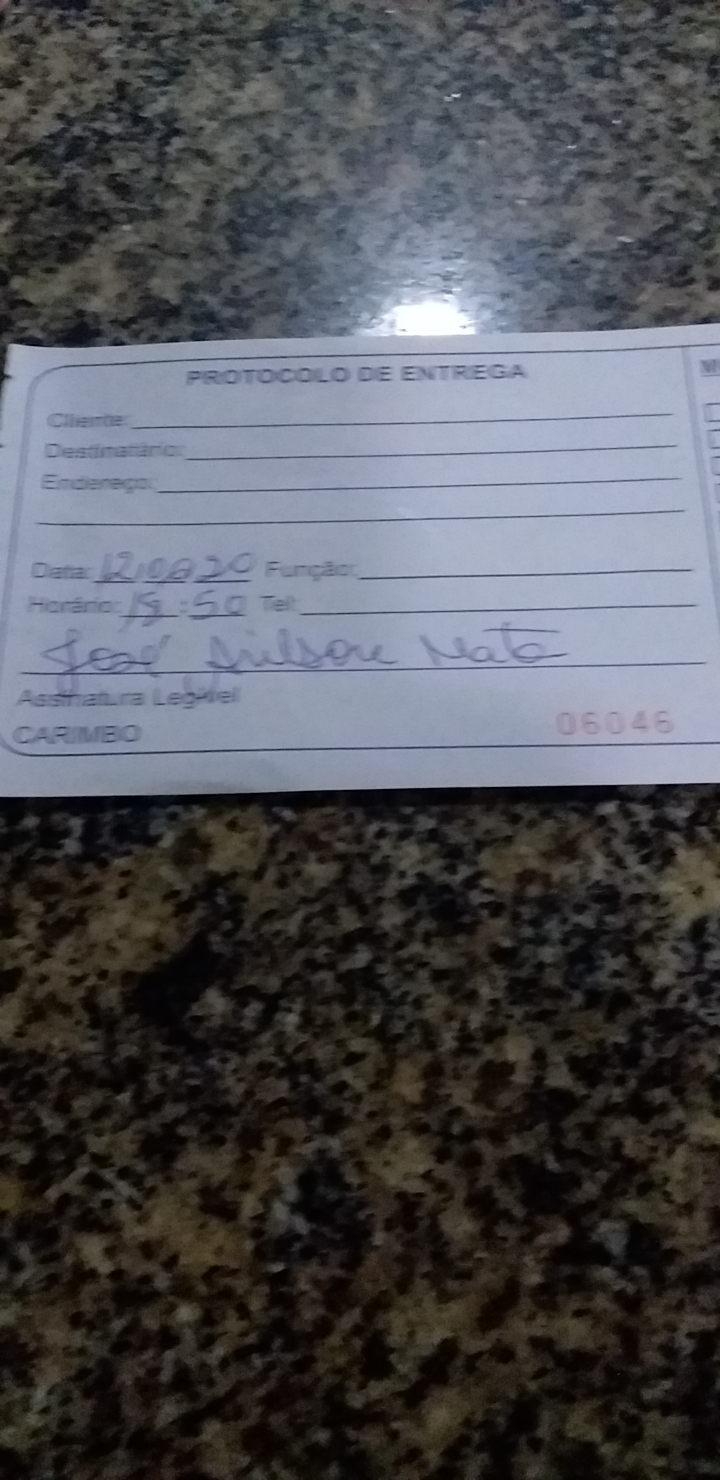 PROTOCOLO DE ENTREGA
Cliente:
Destinatário:
Endereço:
Data: 12/08/20 Função:
Horário: 18:50 Tel:
José Nata
Assinatura Legível
CARIMBO
06046